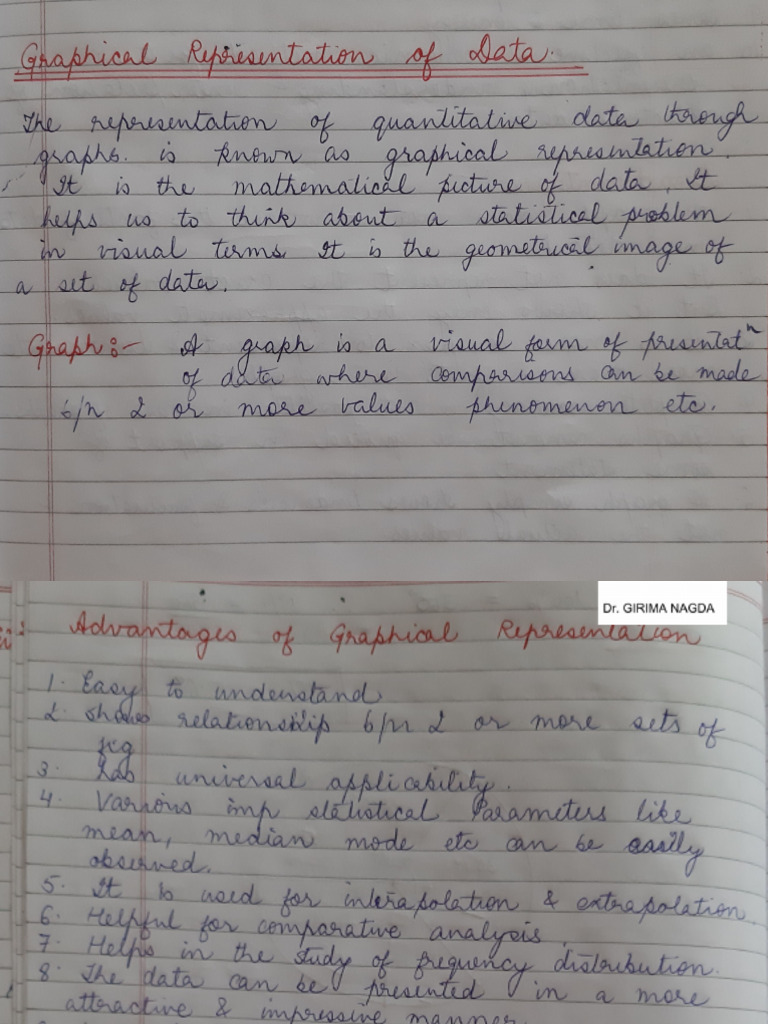 Graphical Representation of Data.
The representation of quantitative data through
graphs. is known as graphical representation.
It is the mathematical picture of data. It
helps us to think about a statistical problem
in visual terms. It is the geometrical image of
a set of data.
Graph:- A graph is a visual form of presentatn
of data where comparisons can be made
b/n 2 or more values phenomenon etc.
Dr. GIRIMA NAGDA
Advantages of Graphical Representation
1. Easy to understand
2. Shows relationship b/n 2 or more sets of
3. Has universal applicability.
4. Various imp statistical Parameters like
mean, median mode etc can be easily
observed.
5. It is used for interapolation & extrapolation.
6. Helpful for comparative analysis.
7. Helps in the study of frequency distribution.
8. The data can be presented in a more
attractive & impressive manner.